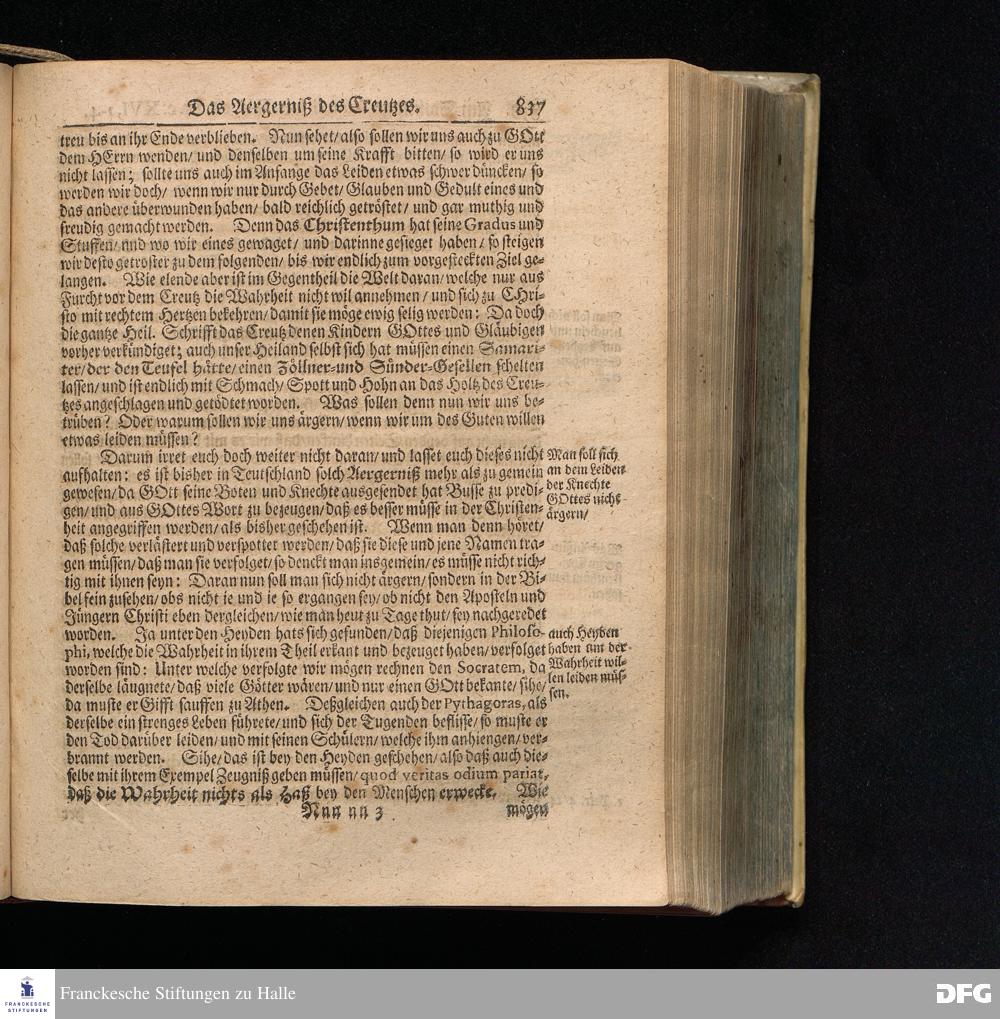 Das Aergerniß des Creutzes. 837
treu bis an ihr Ende verblieben. Nun sehet/ also sollen wir uns auch zu GOtt
dem HErrn wenden/ und denselben um seine Krafft bitten/ so wird er uns
nicht lassen; sollte uns auch im Anfange das Leiden etwas schwer düncken/ so
werden wir doch/ wenn wir nur durch Gebet/ Glauben und Gedult eines und
das andere überwunden haben/ bald reichlich getröstet/ und gar muthig und
freudig gemacht werden. Denn das Christenthum hat seine Gradus und
Stuffen/ und wo wir eines gewaget/ und darinne gesieget haben/ so steigen
wir desto getroster zu dem folgenden/ bis wir endlich zum vorgesteckten Ziel ge-
langen. Wie elende aber ist im Gegentheil die Welt daran/ welche nur aus
Furcht vor dem Creutz die Wahrheit nicht wil annehmen/ und sich zu CHri-
sto mit rechtem Hertzen bekehren/ damit sie möge ewig selig werden: Da doch
die gantze Heil. Schrifft das Creutz denen Kindern GOttes und Gläubigen
vorher verkündiget; auch unser Heiland selbst sich hat müssen einen Samari-
ter/ der den Teufel hätte/ einen Zöllner-und Sünder-Gesellen schelten
lassen/ und ist endlich mit Schmach/ Spott und Hohn an das Holtz des Creu-
tzes angeschlagen und getödtet worden. Was sollen denn nun wir uns be-
trüben? Oder warum sollen wir uns ärgern/ wenn wir um des Guten willen
etwas leiden müssen?
Darum irret euch doch weiter nicht daran/ und lasset euch dieses nicht
aufhalten: es ist bisher in Teutschland solch Aergerniß mehr als zu gemein
gewesen/ da GOtt seine Boten und Knechte ausgesendet hat Busse zu predi-
gen/ und aus GOttes Wort zu bezeugen/ daß es besser müsse in der Christen-
heit angegriffen werden/ als bisher geschehen ist. Wenn man denn höret/
daß solche verlästert und verspottet werden/ daß sie diese und jene Namen tra-
gen müssen/ daß man sie verfolget/ so denckt man insgemein/ es müsse nicht rich-
tig mit ihnen seyn: Daran nun soll man sich nicht ärgern/ sondern in der Bi-
bel fein zusehen/ obs nicht ie und ie so ergangen sey/ ob nicht den Aposteln und
Jüngern Christi eben dergleichen/ wie man heut zu Tage thut/ sey nachgeredet
worden. Ja unter den Heyden hats sich gefunden/ daß diejenigen Philoso-
phi, welche die Wahrheit in ihrem Theil erkant und bezeuget haben/ verfolget
worden sind: Unter welche verfolgte wir mögen rechnen den Socratem, da
derselbe läugnete/ daß viele Götter wären/ und nur einen GOtt bekante/ sihe/
da muste er Gifft sauffen zu Athen. Deßgleichen auch der Pythagoras, als
derselbe ein strenges Leben führete/ und sich der Tugenden beflisse/ so muste er
den Tod darüber leiden/ und mit seinen Schülern/ welche ihm anhiengen/ ver-
brannt werden. Sihe/ das ist bey den Heyden geschehen/ also daß auch die-
selbe mit ihrem Exempel Zeugniß geben müssen/ quod veritas odium pariat,
daß die Wahrheit nichts als Haß bey den Menschen erwecke. Wie
Nnn nn 3 mögen
Man soll sich
an dem Leiden
der Knechte
GOttes nicht
ärgern/
auch Heyden
haben um der
Wahrheit wil-
len leiden müs-
sen.
FRANCKESCHE
STIFTUNGEN
Franckesche Stiftungen zu Halle
DFG